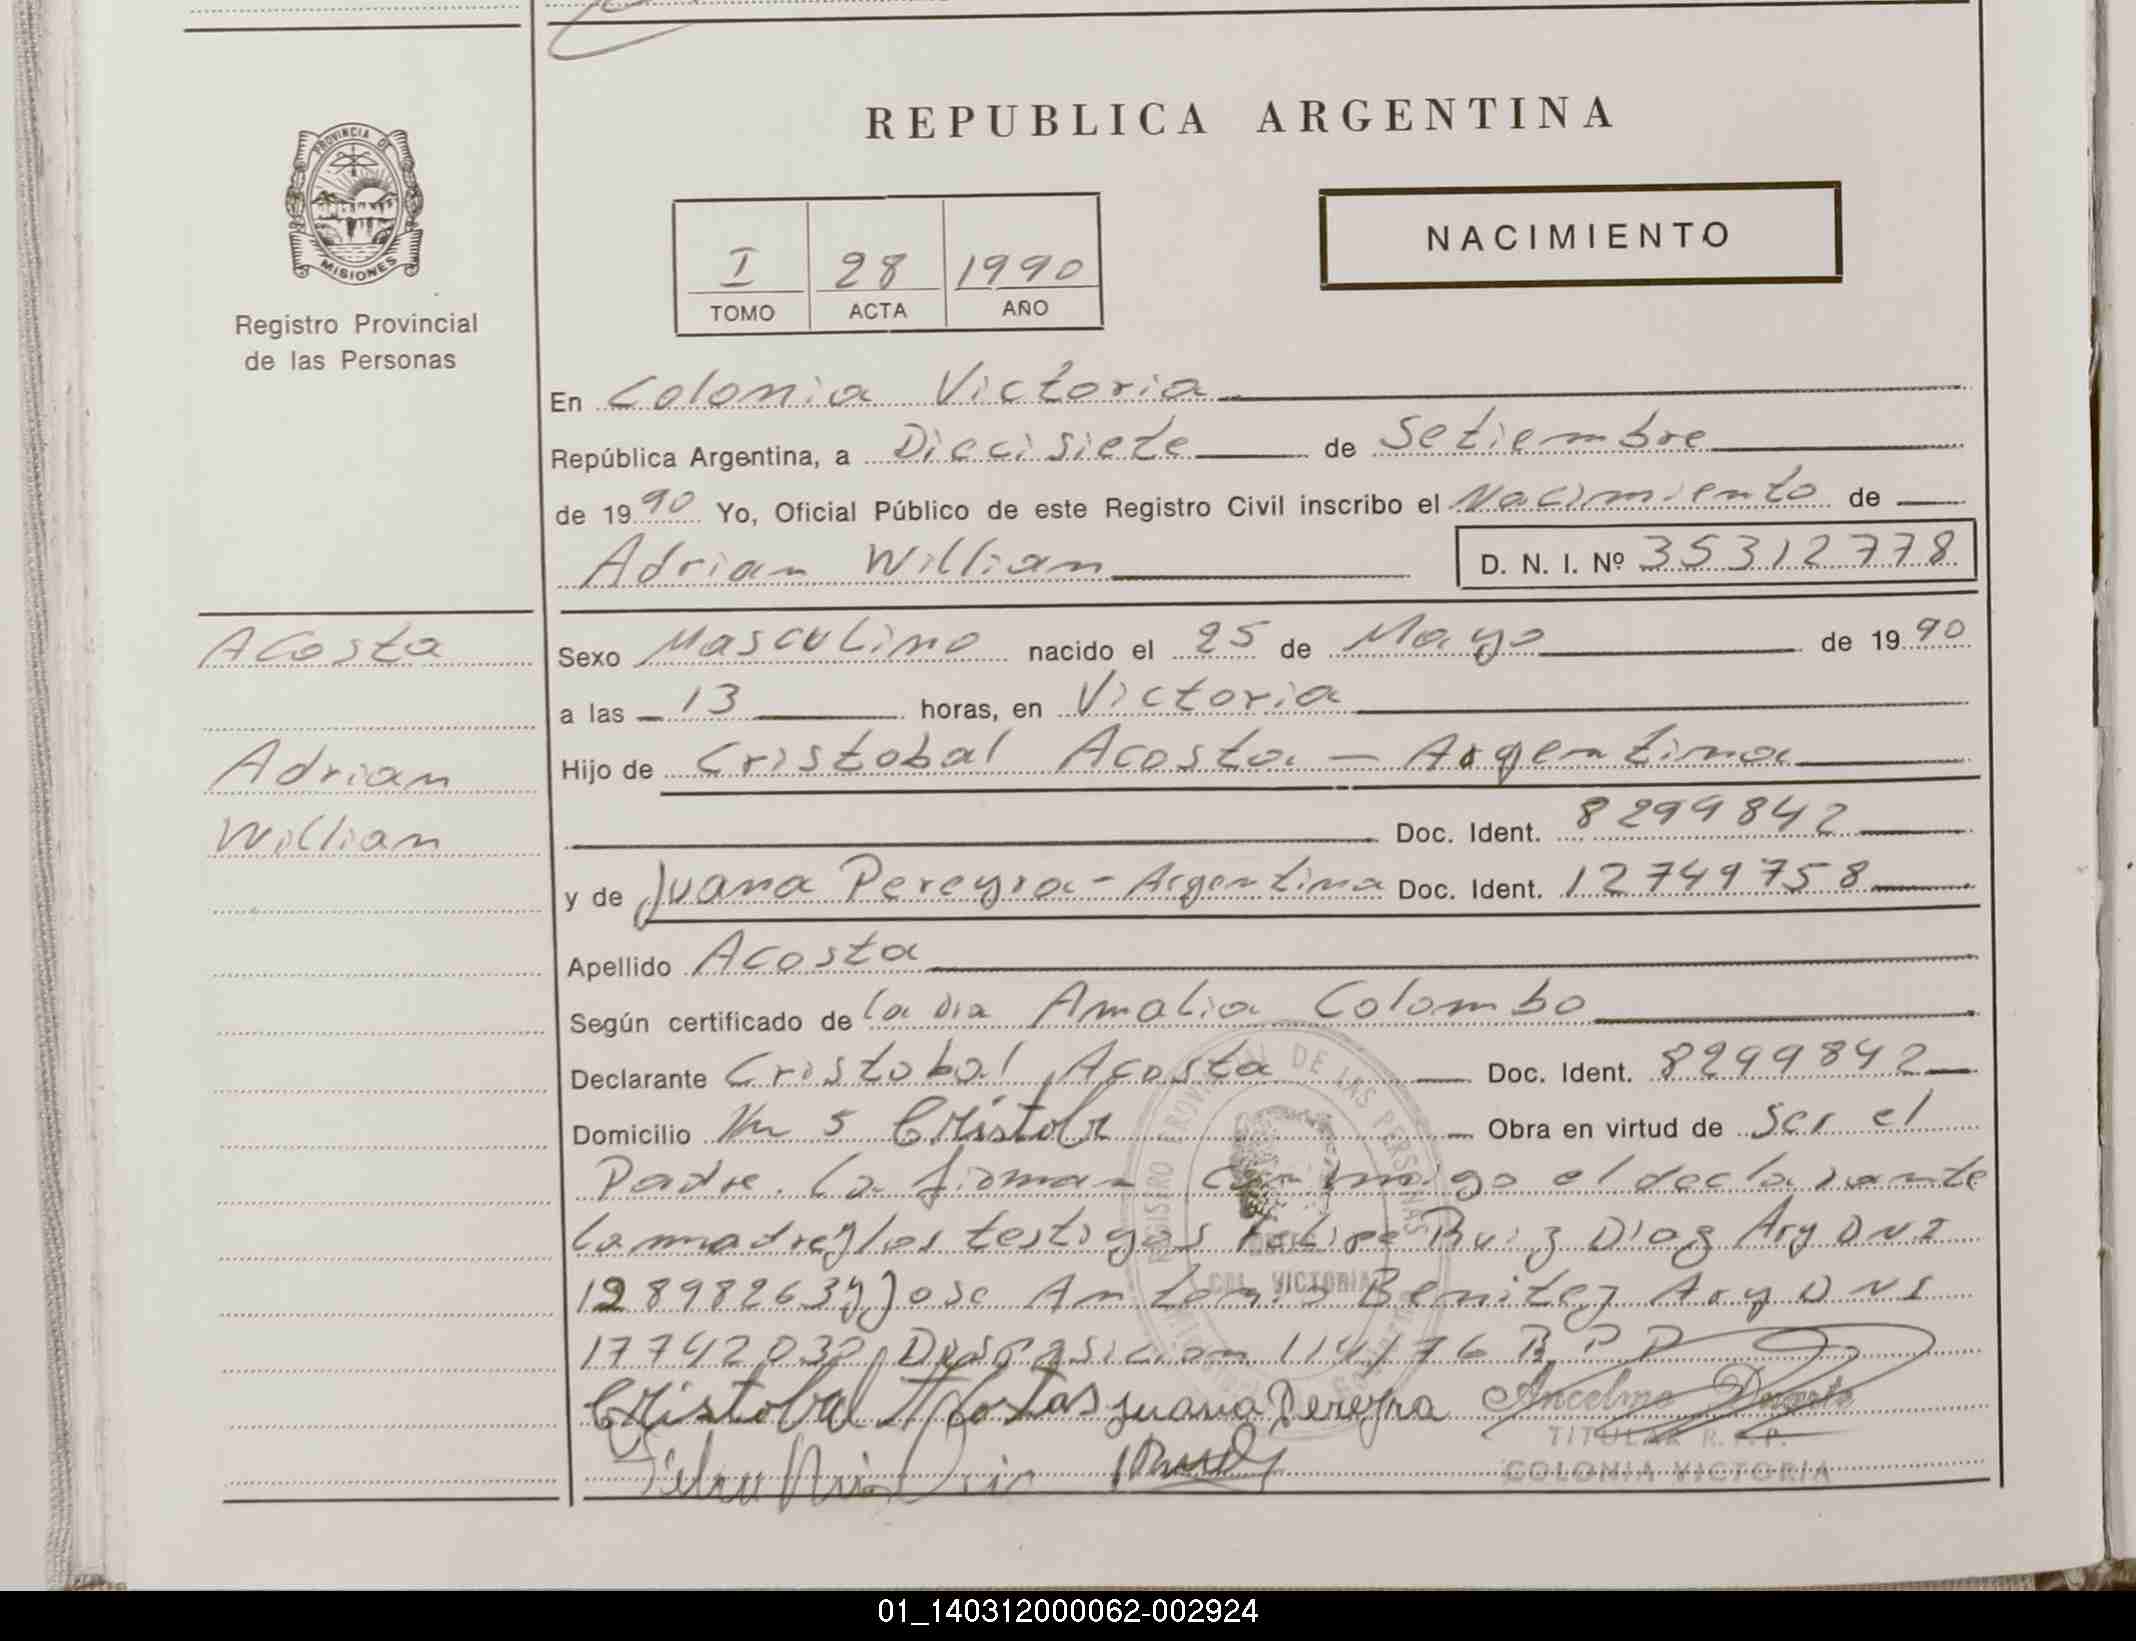 REPUBLICA ARGENTINA
PROVINCIA DE
MISIONES
Registro Provincial
de las Personas
NACIMIENTO
I 28 1990
TOMO ACTA AÑO
En Colonia Victoria
República Argentina, a Diecisiete de Setiembre
de 1990 Yo, Oficial Público de este Registro Civil inscribo el Nacimiento de
Adrian Willian D. N. I. Nº 35312778
Acosta
Adrian
Willian
Sexo Masculino nacido el 25 de Mayo de 1990
a las 13 horas, en Victoria
Hijo de Cristobal Acosta - Argentina
Doc. Ident. 8299842
y de Juana Pereyra - Argentina Doc. Ident. 12749758
Apellido Acosta
Según certificado de la Dra Amalia Colombo
Declarante Cristobal Acosta Doc. Ident. 8299842
Domicilio Km 5 Obra en virtud de ser el
Padre. La firman conmigo el declarante
la madre y los testigos Felipe Ruiz Diaz Arg DNI
12898263 y Jose Antonio Benitez Arg DNI
17742032 Disposicion 114/76 R P P
Cristobal Acosta Juana Pereyra Ancelmo Duarte
TITULAR R.P.P.
COLONIA VICTORIA
REGISTRO PROVINCIAL DE LAS PERSONAS
COL. VICTORIA
01_140312000062-002924